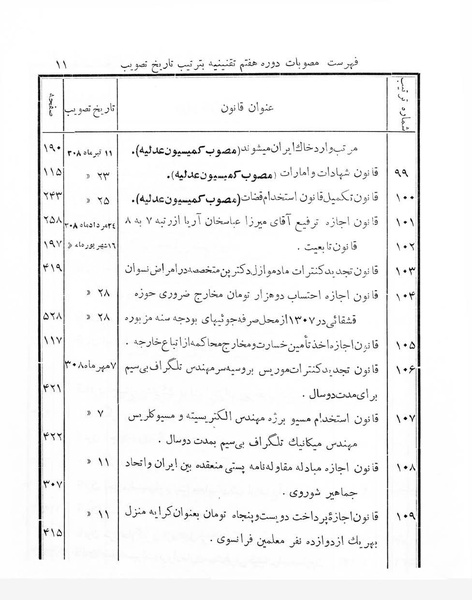 فهرست مصوبات دوره هفتم تقنینیه بترتیب تاریخ تصویب ۱۱
شماره ترتیب عنوان قانون تاریخ تصویب صفحه
مرتب وارد خاك ایران میشوند (مصوب کمیسیون عدلیه). ۱۱ تیرماه ۳۰۸ ۱۹۰
۹۹ قانون شهادات و امارات (مصوب کمیسیون عدلیه). ۲۳ « ۱۱۵
۱۰۰ قانون تکمیل قانون استخدام قضات (مصوب کمیسیون عدلیه). ۲۵ « ۲۴۳
۱۰۱ قانون اجازه ترفیع آقای میرزا عباسخان آریا از رتبه ۷ به ۸ ۲۴مردادماه ۳۰۸ ۲۵۸
۱۰۲ قانون تابعیت . ۱۶شهریورماه « ۱۹۷
۱۰۳ قانون تجدید کنترات مادموازل دکترین متخصصه در امراض نسوان ۴۱۹
۱۰۴ قانون اجازه احتساب دوهزار تومان مخارج ضروری حوزه ۲۸ «
قشقائی در ۱۳۰۷ از محل صرفه جوئیهای بودجه سنه مزبوره ۲۸ « ۵۲۸
۱۰۵ قانون اجازه اخذ تأمین خسارت و مخارج محاکمه از اتباع خارجه . ۱۱۷
۱۰۶ قانون تجدید کنترات موریس بروسیه سرمهندس تلگراف بی‌سیم ۷مهرماه ۳۰۸
برای مدت دو سال . ۴۲۱
۱۰۷ قانون استخدام مسیو برژه مهندس الکتریسیته و مسیو کلریس ۷ «
مهندس میکانیك تلگراف بی‌سیم بمدت دو سال . ۴۲۲
۱۰۸ قانون اجازه مبادله مقاوله‌نامه پستی منعقده بین ایران و اتحاد ۱۱ «
جماهیر شوروی . ۳۰۷
۱۰۹ قانون اجازهٔ پرداخت دویست و پنجاه تومان بعنوان کرایه منزل ۱۱ «
بهریك از دوازده نفر معلمین فرانسوی . ۴۱۵